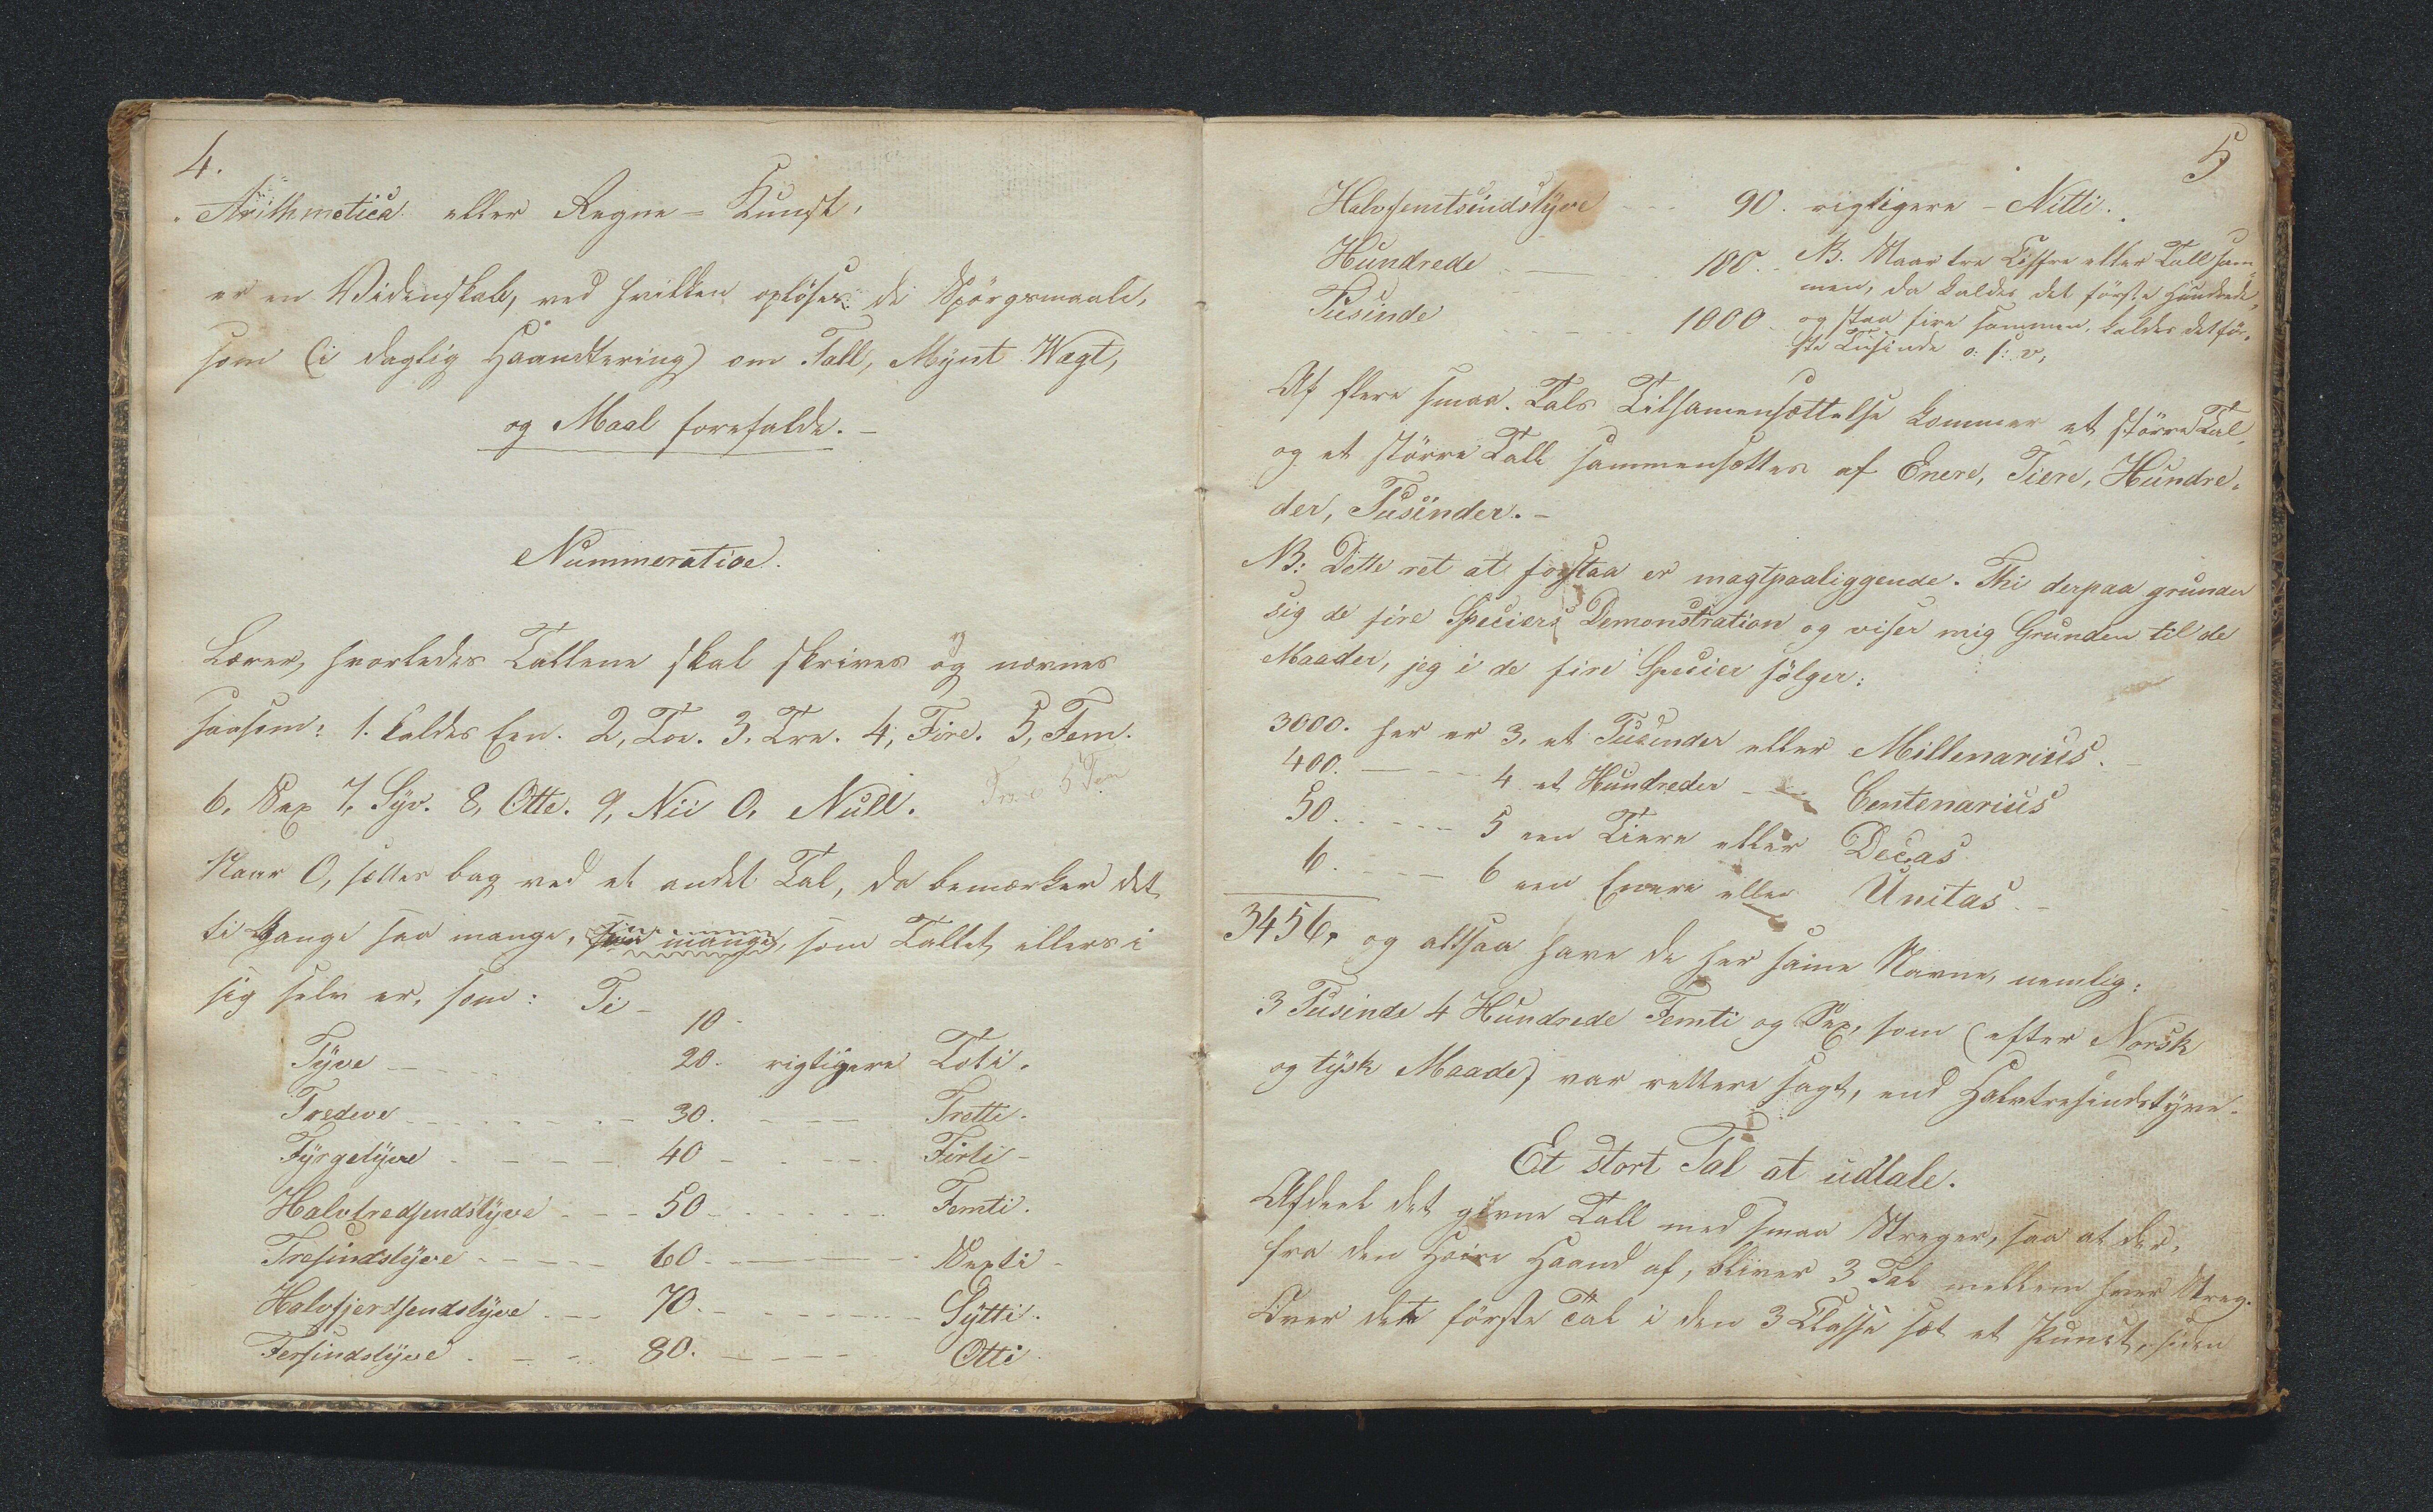 4.
Arithmetica eller Regne-Kunst,
er en Videnskab, ved hvilken oplöses de Spörgsmaale,
som (i daglig Haandtering) om Tall, Mynt Wægt,
og Maal forefalde. -
Nummeratioe.
Lærer, hvorledes Tallene skal skrives og nævnes
saasom: 1. kaldes Een. 2, Toe. 3. Tre. 4, Fire. 5, Fem.
6. Sex 7, Syv. 8, Otte. 9, Nii 0. Null.
Naar 0, sættes bag ved et andet Tal, da bemærker det
ti Gange saa mange, saa mange, som Tallet ellers i
sig selv er, som: Ti - 10 -
Tyve - - - 20. rigtigere Toti.
Tredeve - - - 30. - - - Tretti.
Fyrgetyve - - - 40 - - - Firti -
Halvtredsendstyve - - - 50 - - - Femti.
Tresindstyve - - - 60. - - - Sexti -
Halvfjerdsendstyve - - - 70. - - - Sytti.
Fersindstyve - - - 80. - - - Otti
5
Halvfemtsindstyve - - - 90. rigtigere - Nitti.
Hundrede - - - 100. - NB. Staar tre Ciffre eller Tall sam-
men, da kaldes det förste Hundrede,
Tusinde - - - 1000. og staa fire sammen, kaldes det för-
ste Tusinde o: s: v,
Af flere smaa Tals Tilsamensættelse kommer et större Tal,
og et större Tall sammensættes af Enere, Tiere, Hundre-
der, Tusinder. -
NB: Dette ret at forstaa er magtpaaliggende. Thi derpaa grunder
sig de fire Speciers Demonstration og viser mig Grunden til de
Maader, jeg i de fire Specier fölger:
3000. her er 3. et Tusinder eller Millenarius. -
400. - - - 4 et Hundreder - - Centenarius
50. - - - 5 een Tiere eller Decas
6. - - - 6 een Enere eller Unitas. -
3456, og altsaa have de her saine Navne, nemlig:
3 Tusinde 4 Hundrede Femti og Sex, som (efter Norsk
og tysk Maade) var rettere sagt, end Halvtresindstyve.
Et stort Tal at udtale.
Afdeel det givne Tall med smaa Streger, saa at der,
fra den Höire Haand af, bliver 3 Tal mellem hver Streg.
Over det förste Tal i den 3 Classe sæt et Punct, siden